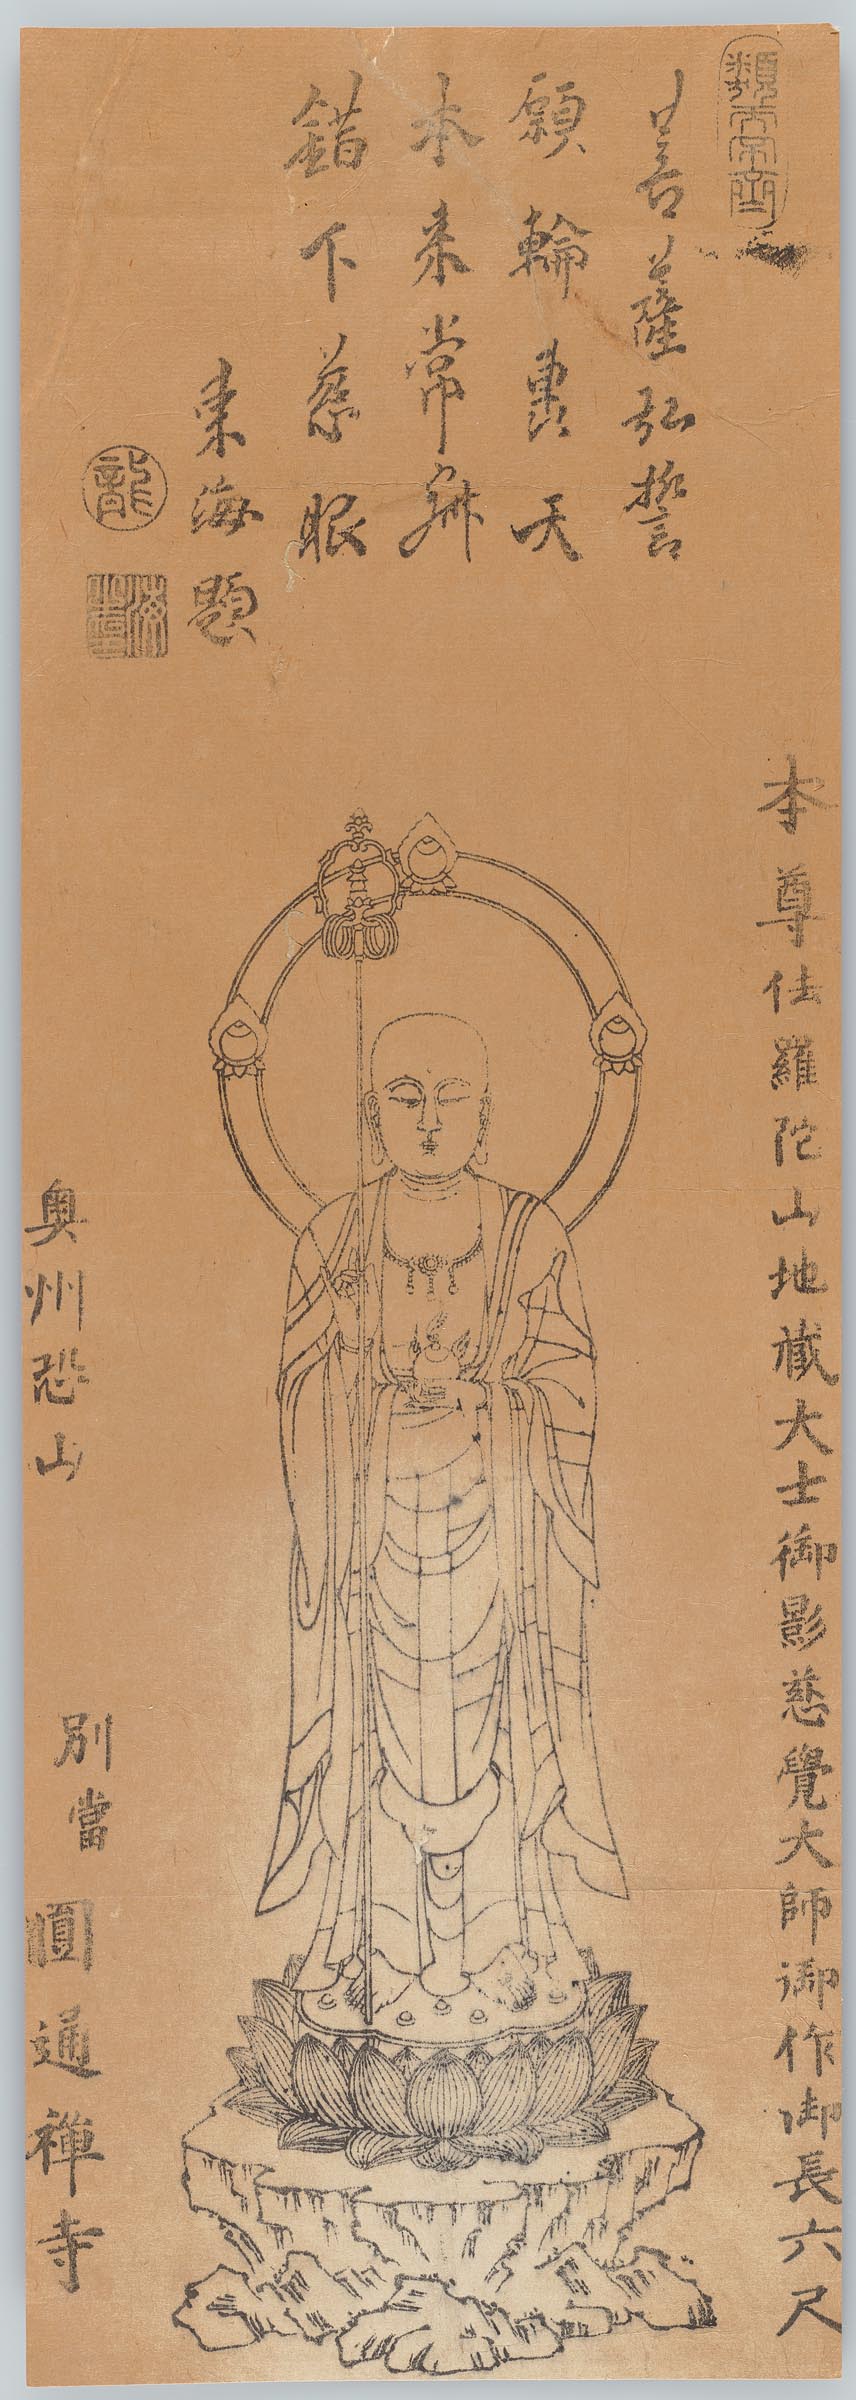 菩薩弘誓
願輪裏天
本来常寂
錯下慈眼
東海題
龍
本尊佉羅陀山地藏大士御影慈覺大師御作御長六尺
奥州恐山
別當
圓通禅寺